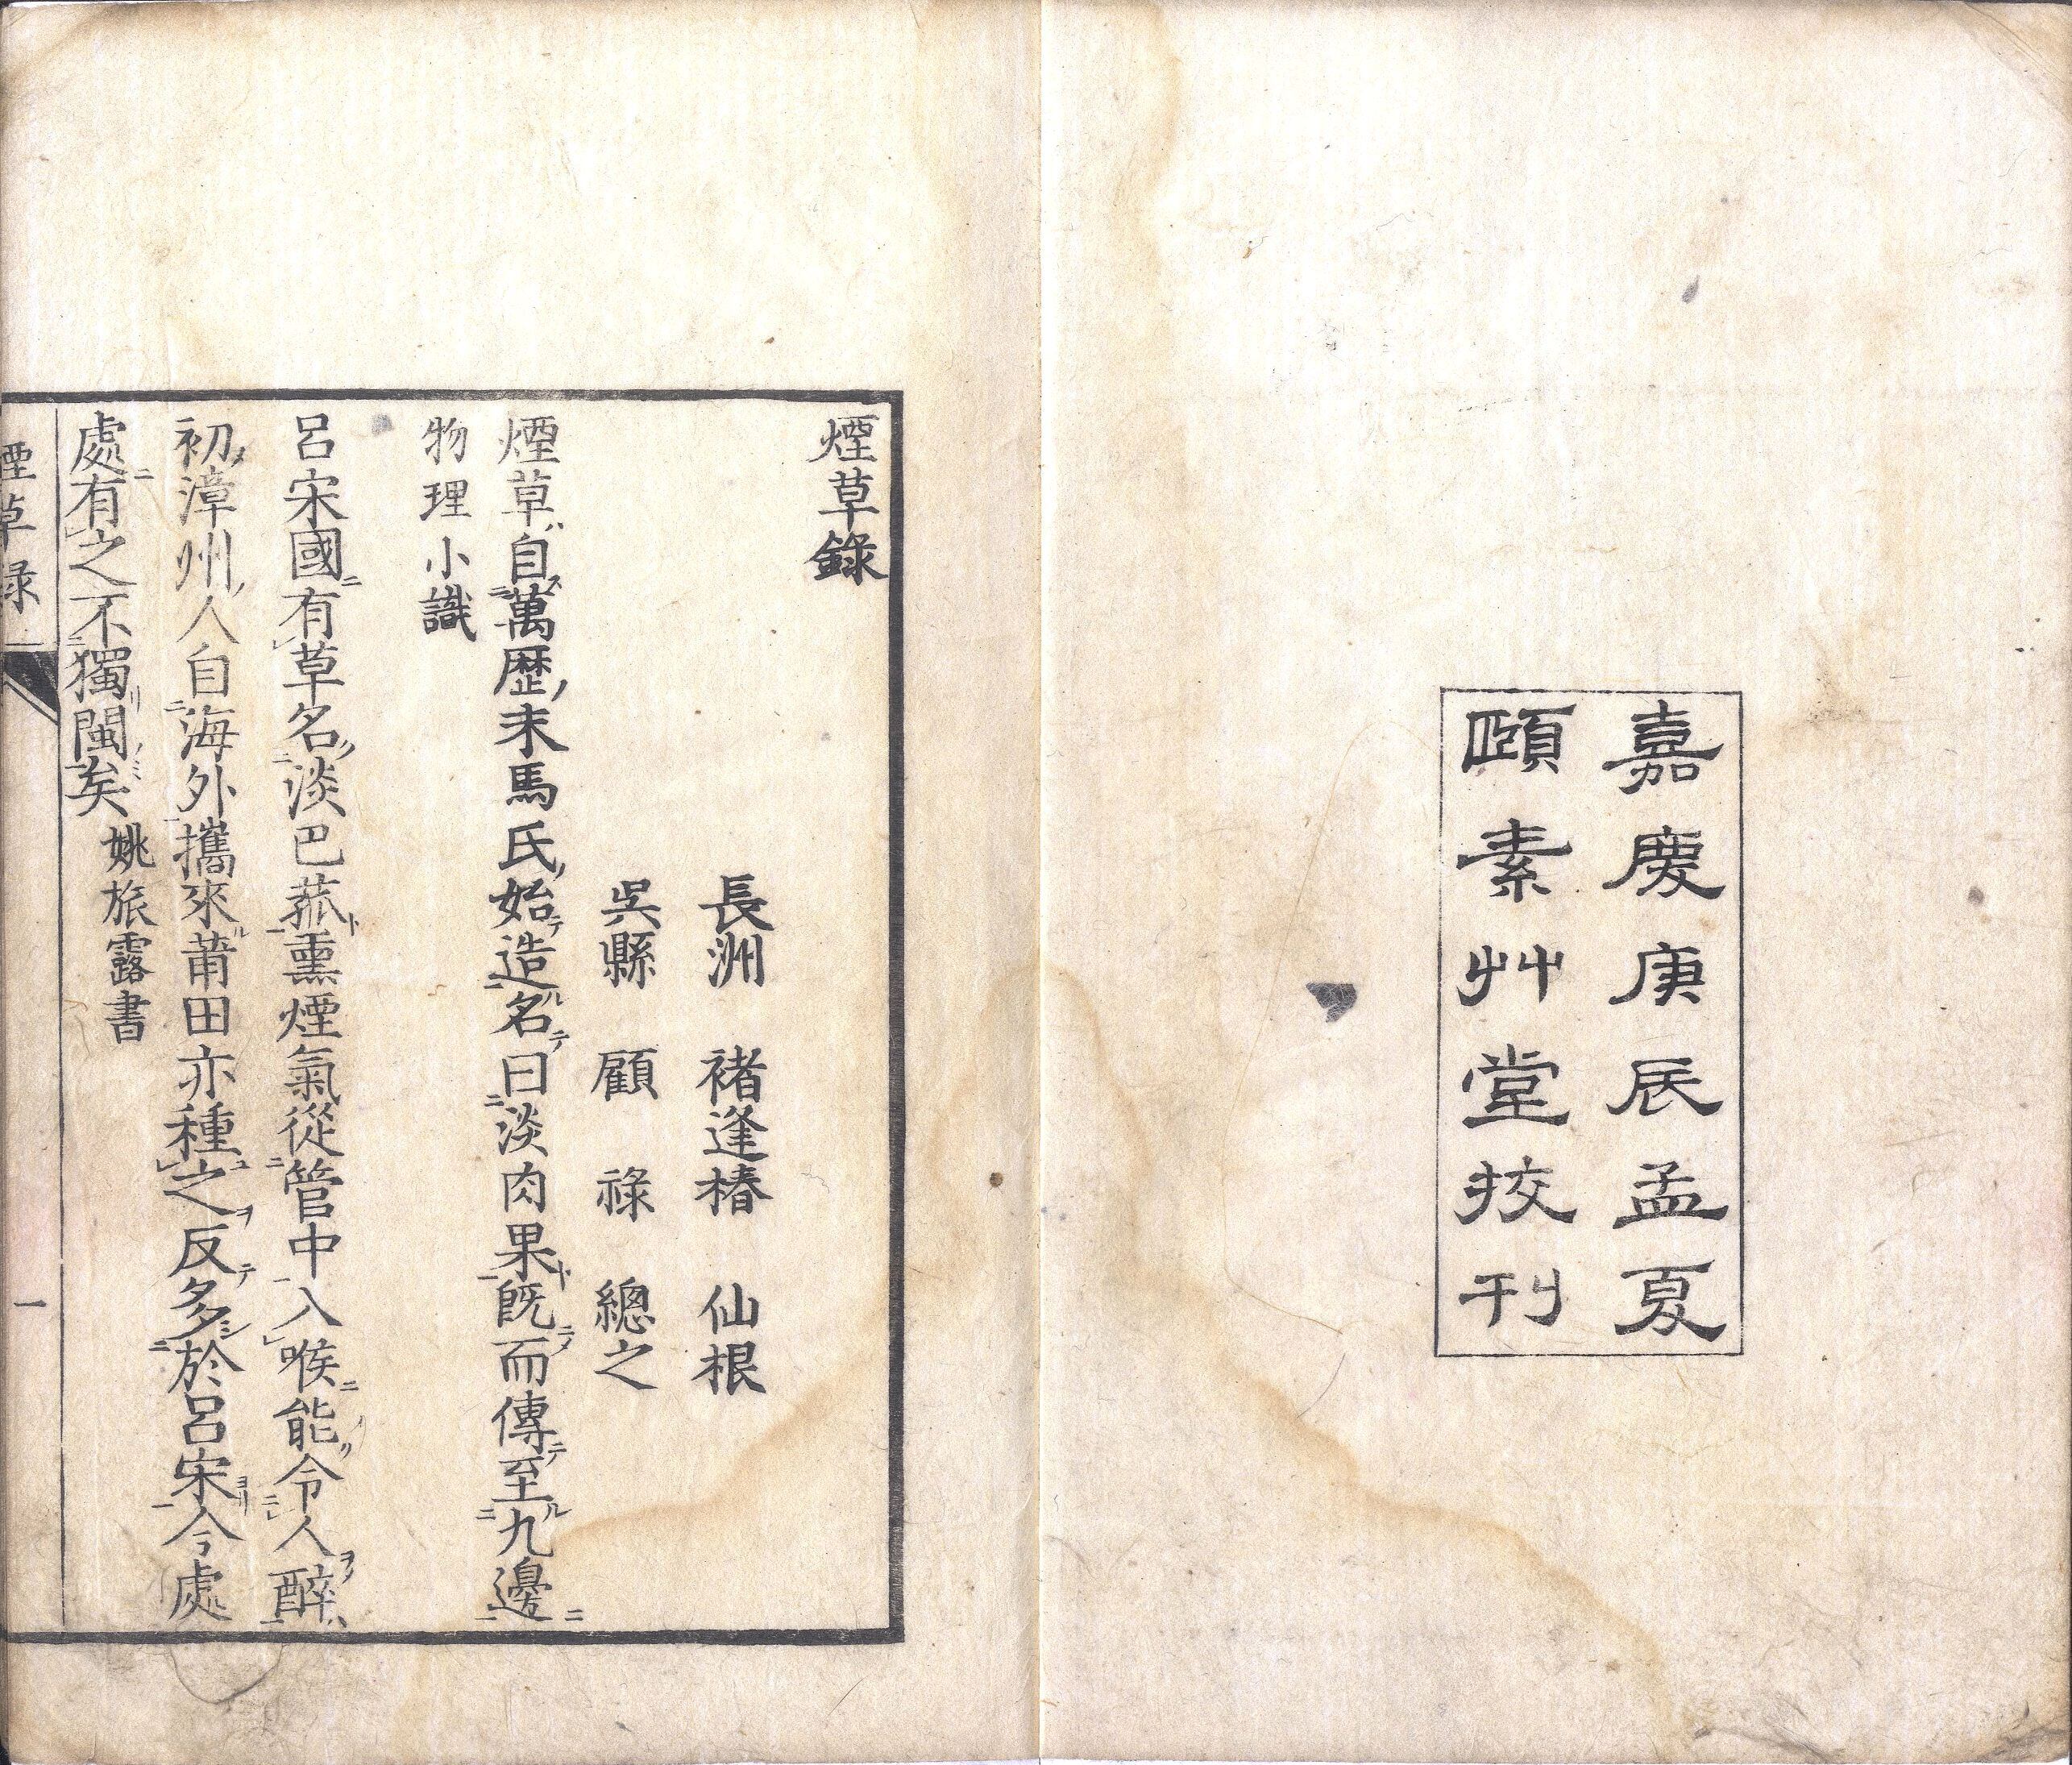 嘉慶庚辰孟夏
頤素艸堂挍刊
煙草錄
長洲　褚逢椿　仙根
吳縣　顧　祿　總之
煙草自萬歷末馬氏始造名曰淡肉果旣而傳至九邊
物理小識
呂宋國有草名淡巴菰熏煙氣從管中入喉能令人醉
初漳州人自海外攜來莆田亦種之反多於呂宋今處
處有之不獨閩矣　姚旅露書
煙草錄　一